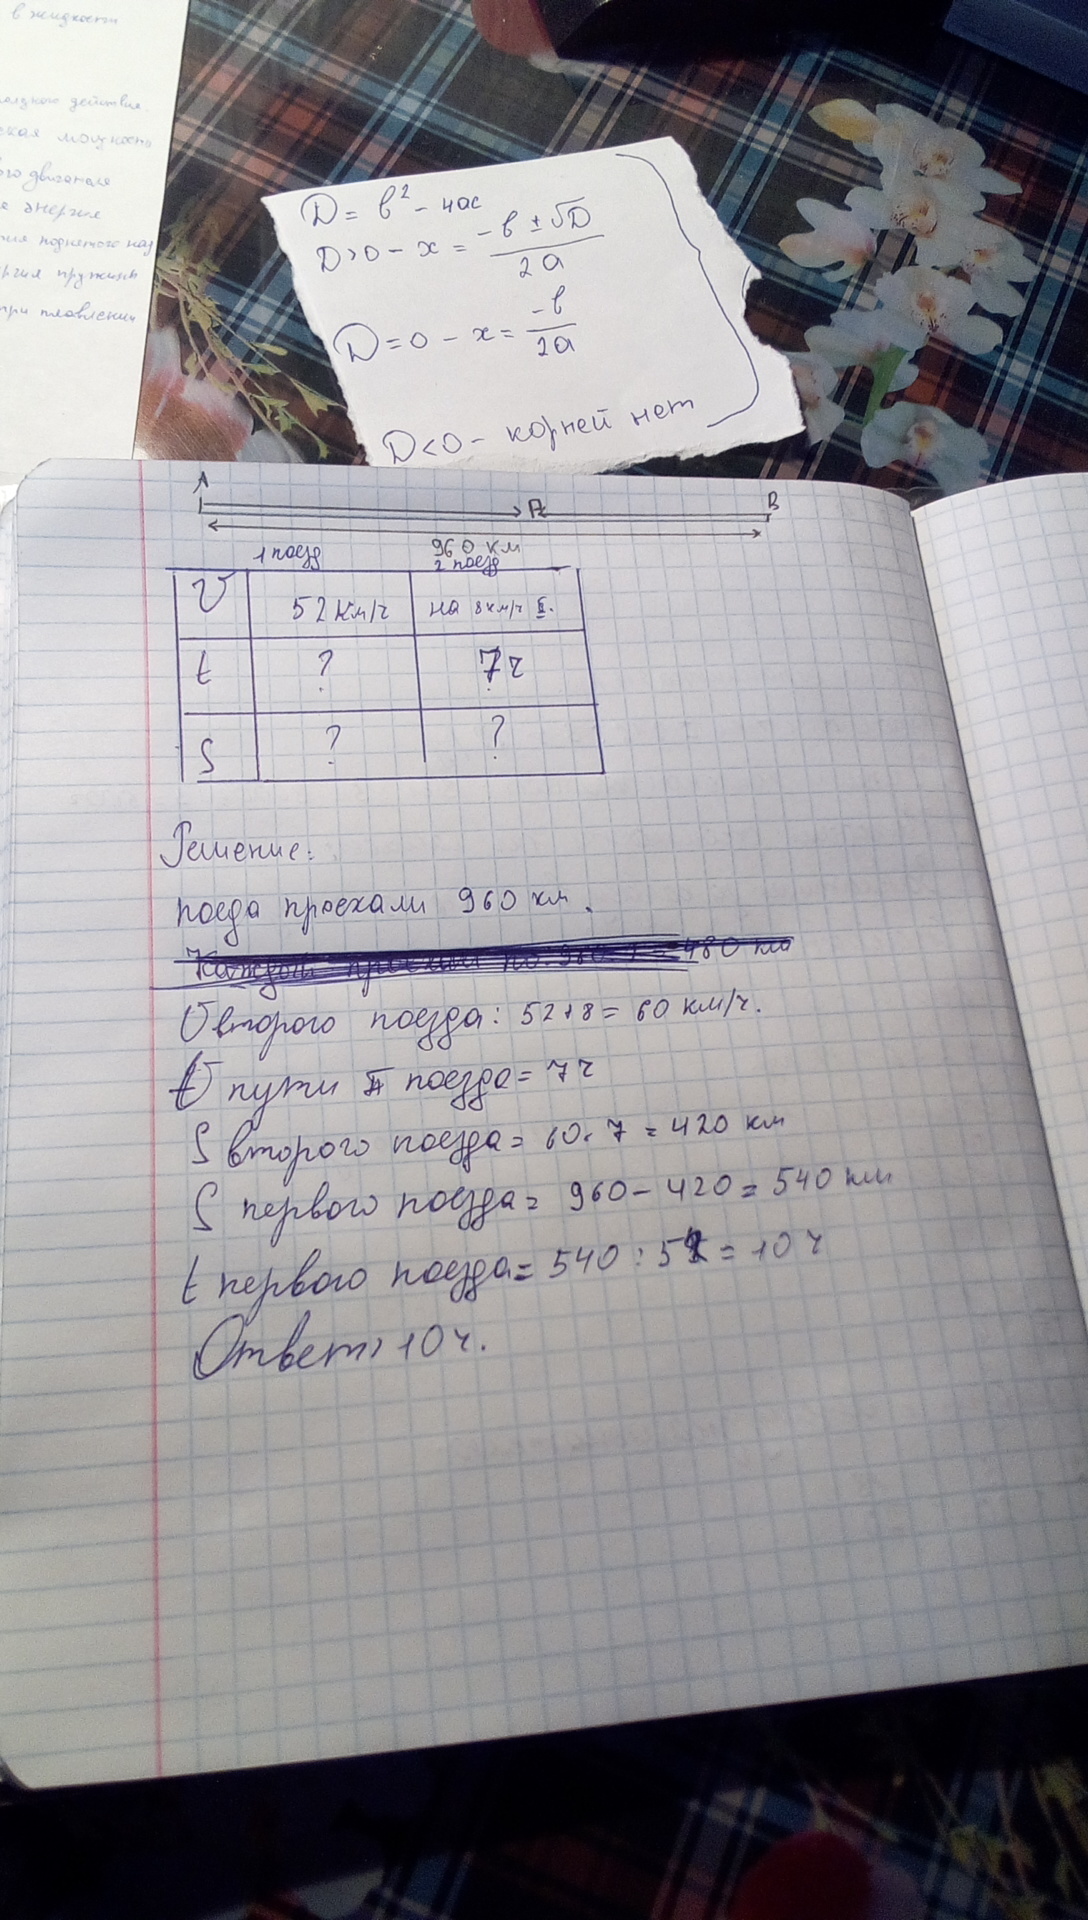 в жидкости
действия.
ская мощность
ого двигателя
я энергия
ия поднятого над
ргия пружины
при плавлении
D = b² - 4ac
D>0 - x = -b ± √D / 2a
D = 0 - x = -b / 2a
D<0 - корней нет
A B
960 км
1 поезд 2 поезд
V 52 км/ч на 8 км/ч Б.
t ? 7 ч
S ? ?
Решение:
поеда проехали 960 км.
480 км
V второго поезда: 52+8 = 60 км/ч.
t пути II поезда = 7 ч
S второго поезда = 60 · 7 = 420 км
S первого поезда = 960 - 420 = 540 км
t первого поезда = 540 : 54 = 10 ч
Ответ: 10 ч.